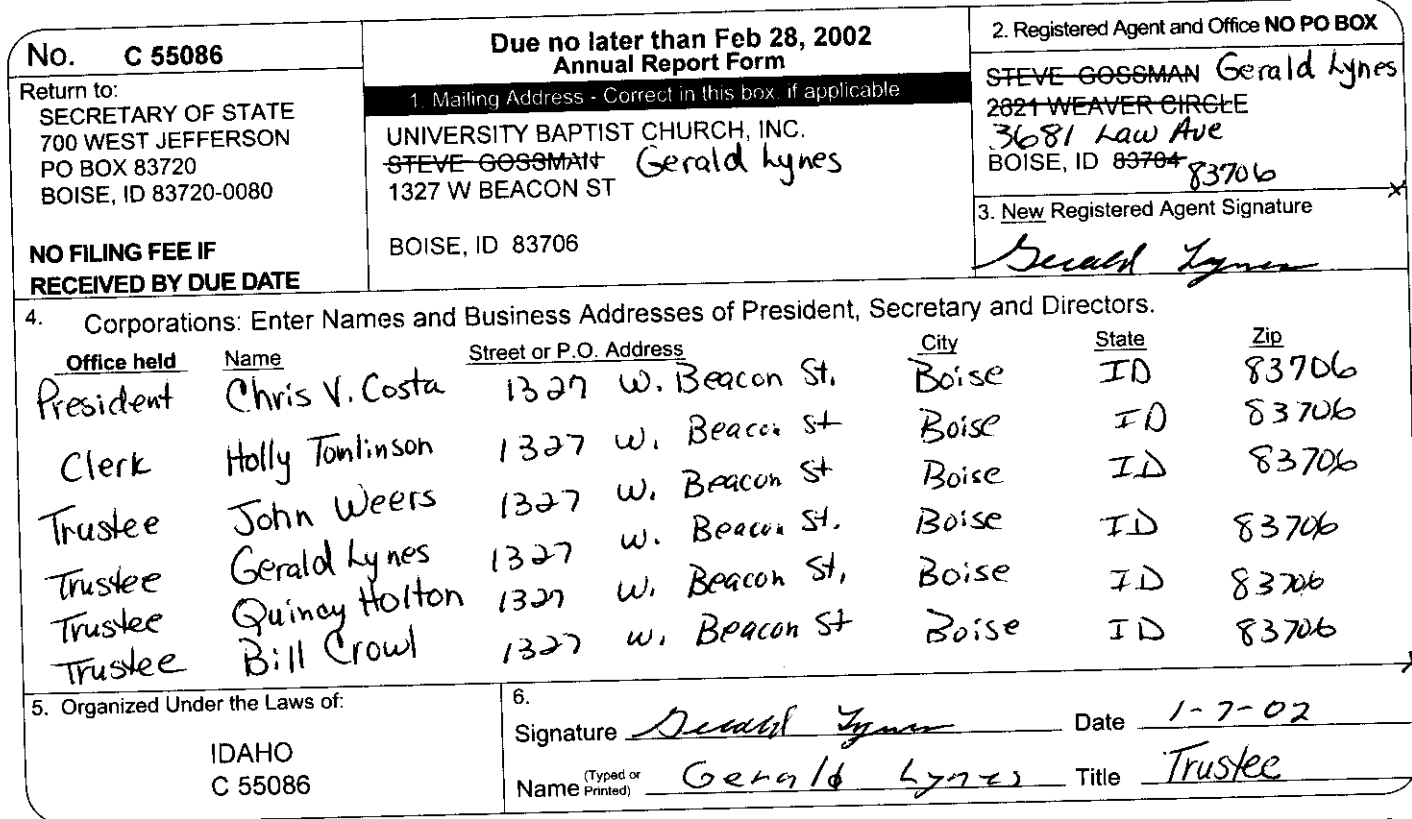 No. C 55086
Return to:
SECRETARY OF STATE
700 WEST JEFFERSON
PO BOX 83720
BOISE, ID 83720-0080
NO FILING FEE IF
RECEIVED BY DUE DATE
Due no later than Feb 28, 2002
Annual Report Form
1. Mailing Address - Correct in this box, if applicable
UNIVERSITY BAPTIST CHURCH, INC.
STEVE GOSSMAN Gerald Lynes
1327 W BEACON ST
BOISE, ID 83706
2. Registered Agent and Office NO PO BOX
STEVE GOSSMAN Gerald Lynes
2821 WEAVER CIRCLE
3681 Law Ave
BOISE, ID 83704 83706
3. New Registered Agent Signature
Gerald Lynes
4. Corporations: Enter Names and Business Addresses of President, Secretary and Directors.
Office held Name Street or P.O. Address City State Zip
President Chris V. Costa 1327 W. Beacon St. Boise ID 83706
Clerk Holly Tomlinson 1327 W. Beacon St Boise ID 83706
Trustee John Weers 1327 W. Beacon St Boise ID 83706
Trustee Gerald Lynes 1327 W. Beacon St. Boise ID 83706
Trustee Quincy Holton 1327 W. Beacon St. Boise ID 83706
Trustee Bill Crowl 1327 W. Beacon St Boise ID 83706
5. Organized Under the Laws of:
IDAHO
C 55086
6.
Signature Gerald Lynes Date 1-7-02
Name (Typed or Printed) Gerald Lynes Title Trustee